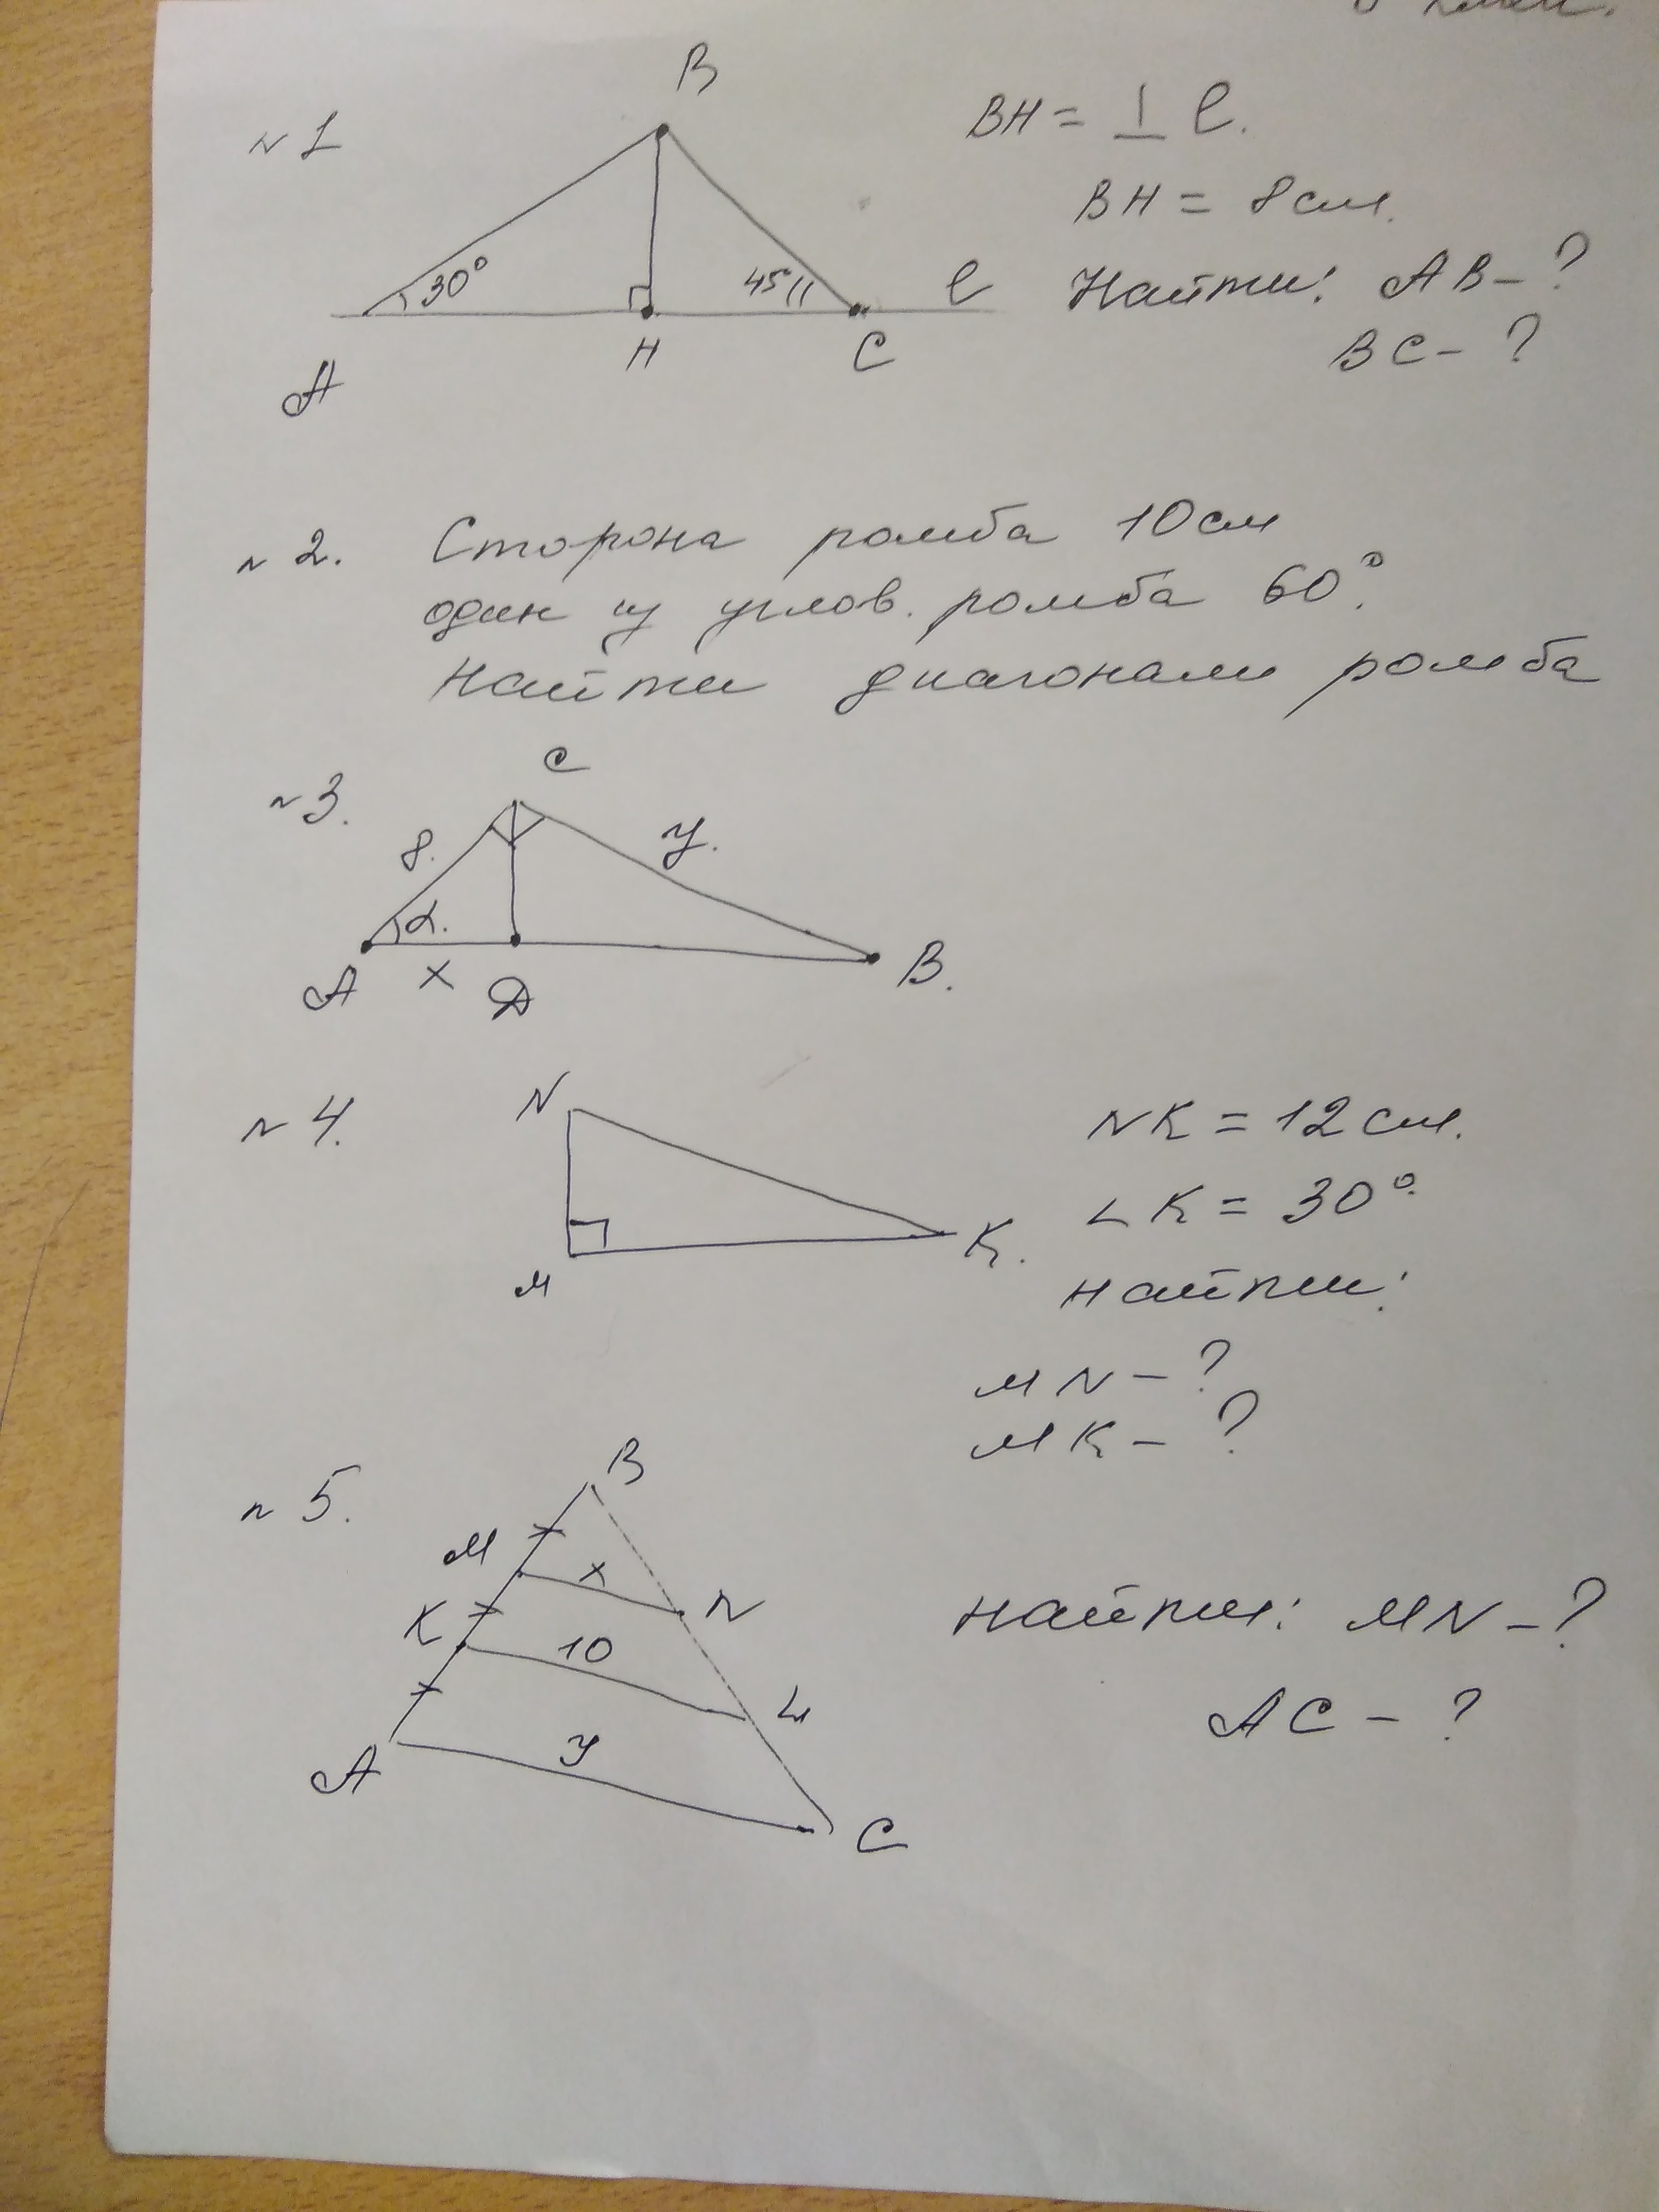 №1
B
30°
45°
A
H
C
l
BH = ⊥ l.
BH = 8см.
Найти: AB - ?
BC - ?
№2. Сторона ромба 10см
один из углов. ромба 60°.
Найти диагонали ромба
№3.
C
8.
y.
α.
A
x
D
B.
№4.
N
M
K.
NK = 12см.
∠K = 30°.
найти:
MN - ?
MK - ?
№5.
B
M
x
N
K
10
L
y
A
C
найти: MN - ?
AC - ?